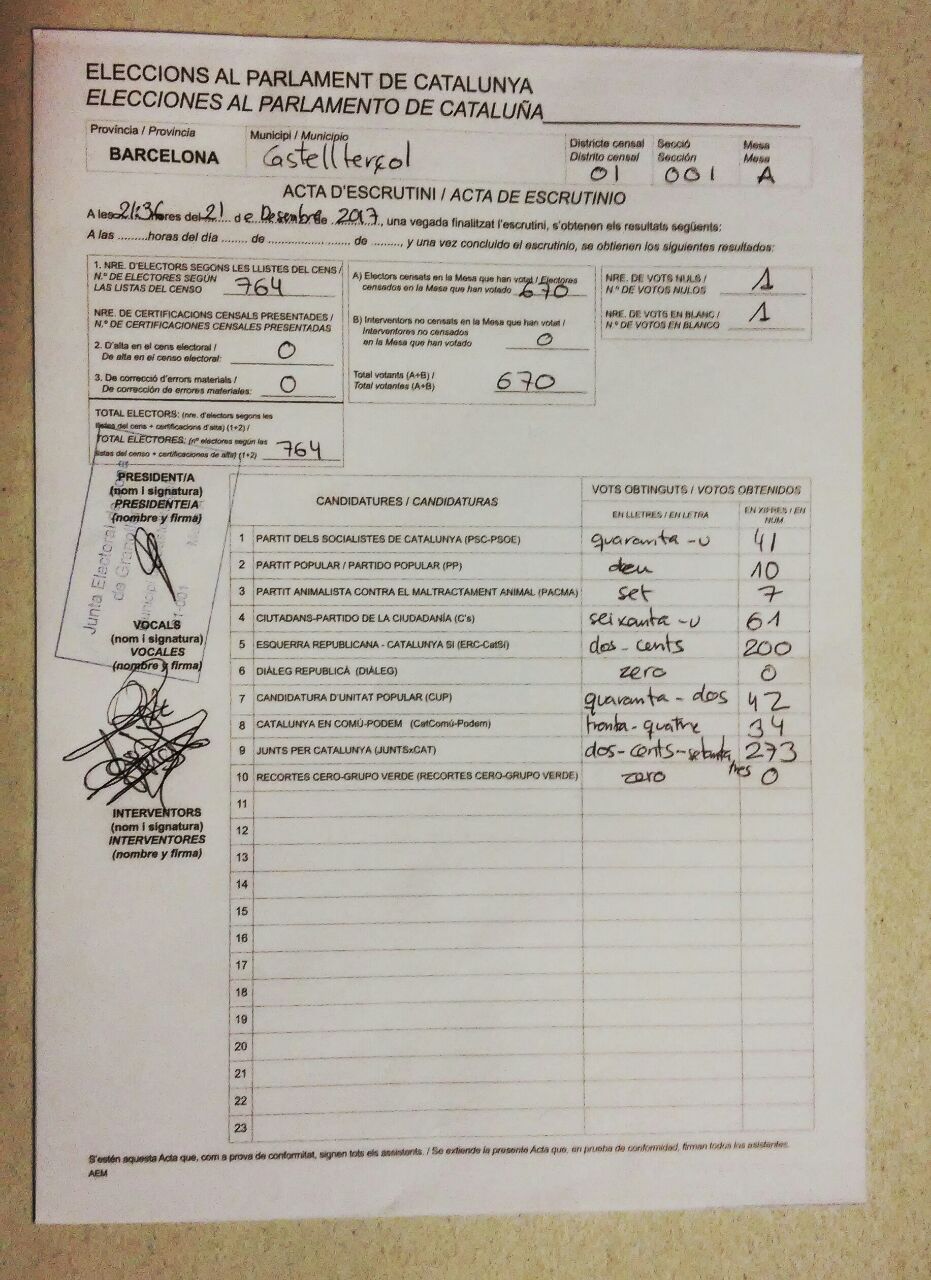 ELECCIONS AL PARLAMENT DE CATALUNYA
ELECCIONES AL PARLAMENTO DE CATALUÑA
Província / Provincia
BARCELONA
Municipi / Municipio
Castellterçol
Districte censal
Distrito censal
01
Secció
Sección
001
Mesa
Mesa
A
ACTA D'ESCRUTINI / ACTA DE ESCRUTINIO
A les 21:36 hores del 21 de Desembre de 2017, una vegada finalitzat l'escrutini, s'obtenen els resultats següents:
A las .........horas del día ........ de ........................ de ........, y una vez concluido el escrutinio, se obtienen los siguientes resultados:
1. NRE. D'ELECTORS SEGONS LES LLISTES DEL CENS /
N.º DE ELECTORES SEGÚN
LAS LISTAS DEL CENSO 764
NRE. DE CERTIFICACIONS CENSALS PRESENTADES /
N.º DE CERTIFICACIONES CENSALES PRESENTADAS
2. D'alta en el cens electoral /
De alta en el censo electoral: 0
3. De correcció d'errors materials /
De corrección de errores materiales: 0
TOTAL ELECTORS: (nre. d'electors segons les
llistes del cens + certificacions d'alta) (1+2) /
TOTAL ELECTORES: (nº electores según las
listas del censo + certificaciones de alta) (1+2) 764
A) Electors censats en la Mesa que han votat / Electores
censados en la Mesa que han votado 670
B) Interventors no censats en la Mesa que han votat /
Interventores no censados
en la Mesa que han votado 0
Total votants (A+B) /
Total votantes (A+B) 670
NRE. DE VOTS NULS /
N.º DE VOTOS NULOS 1
NRE. DE VOTS EN BLANC /
N.º DE VOTOS EN BLANCO 1
PRESIDENT/A
(nom i signatura)
PRESIDENTE/A
(nombre y firma)
Junta Electoral de
de Granollers
VOCALS
(nom i signatura)
VOCALES
(nombre y firma)
INTERVENTORS
(nom i signatura)
INTERVENTORES
(nombre y firma)
CANDIDATURES / CANDIDATURAS
VOTS OBTINGUTS / VOTOS OBTENIDOS
EN LLETRES / EN LETRA
EN XIFRES / EN NUM
1 PARTIT DELS SOCIALISTES DE CATALUNYA (PSC-PSOE) quaranta-u 41
2 PARTIT POPULAR / PARTIDO POPULAR (PP) deu 10
3 PARTIT ANIMALISTA CONTRA EL MALTRACTAMENT ANIMAL (PACMA) set 7
4 CIUTADANS-PARTIDO DE LA CIUDADANÍA (C's) seixanta-u 61
5 ESQUERRA REPUBLICANA - CATALUNYA SÍ (ERC-CatSí) dos-cents 200
6 DIÀLEG REPUBLICÀ (DIÀLEG) zero 0
7 CANDIDATURA D'UNITAT POPULAR (CUP) quaranta-dos 42
8 CATALUNYA EN COMÚ-PODEM (CatComú-Podem) trenta-quatre 34
9 JUNTS PER CATALUNYA (JUNTSxCAT) dos-cents-setanta tres 273
10 RECORTES CERO-GRUPO VERDE (RECORTES CERO-GRUPO VERDE) zero 0
11
12
13
14
15
16
17
18
19
20
21
22
23
S'estén aquesta Acta que, com a prova de conformitat, signen tots els assistents. / Se extiende la presente Acta que, en prueba de conformidad, firman todos los asistentes.
AEM